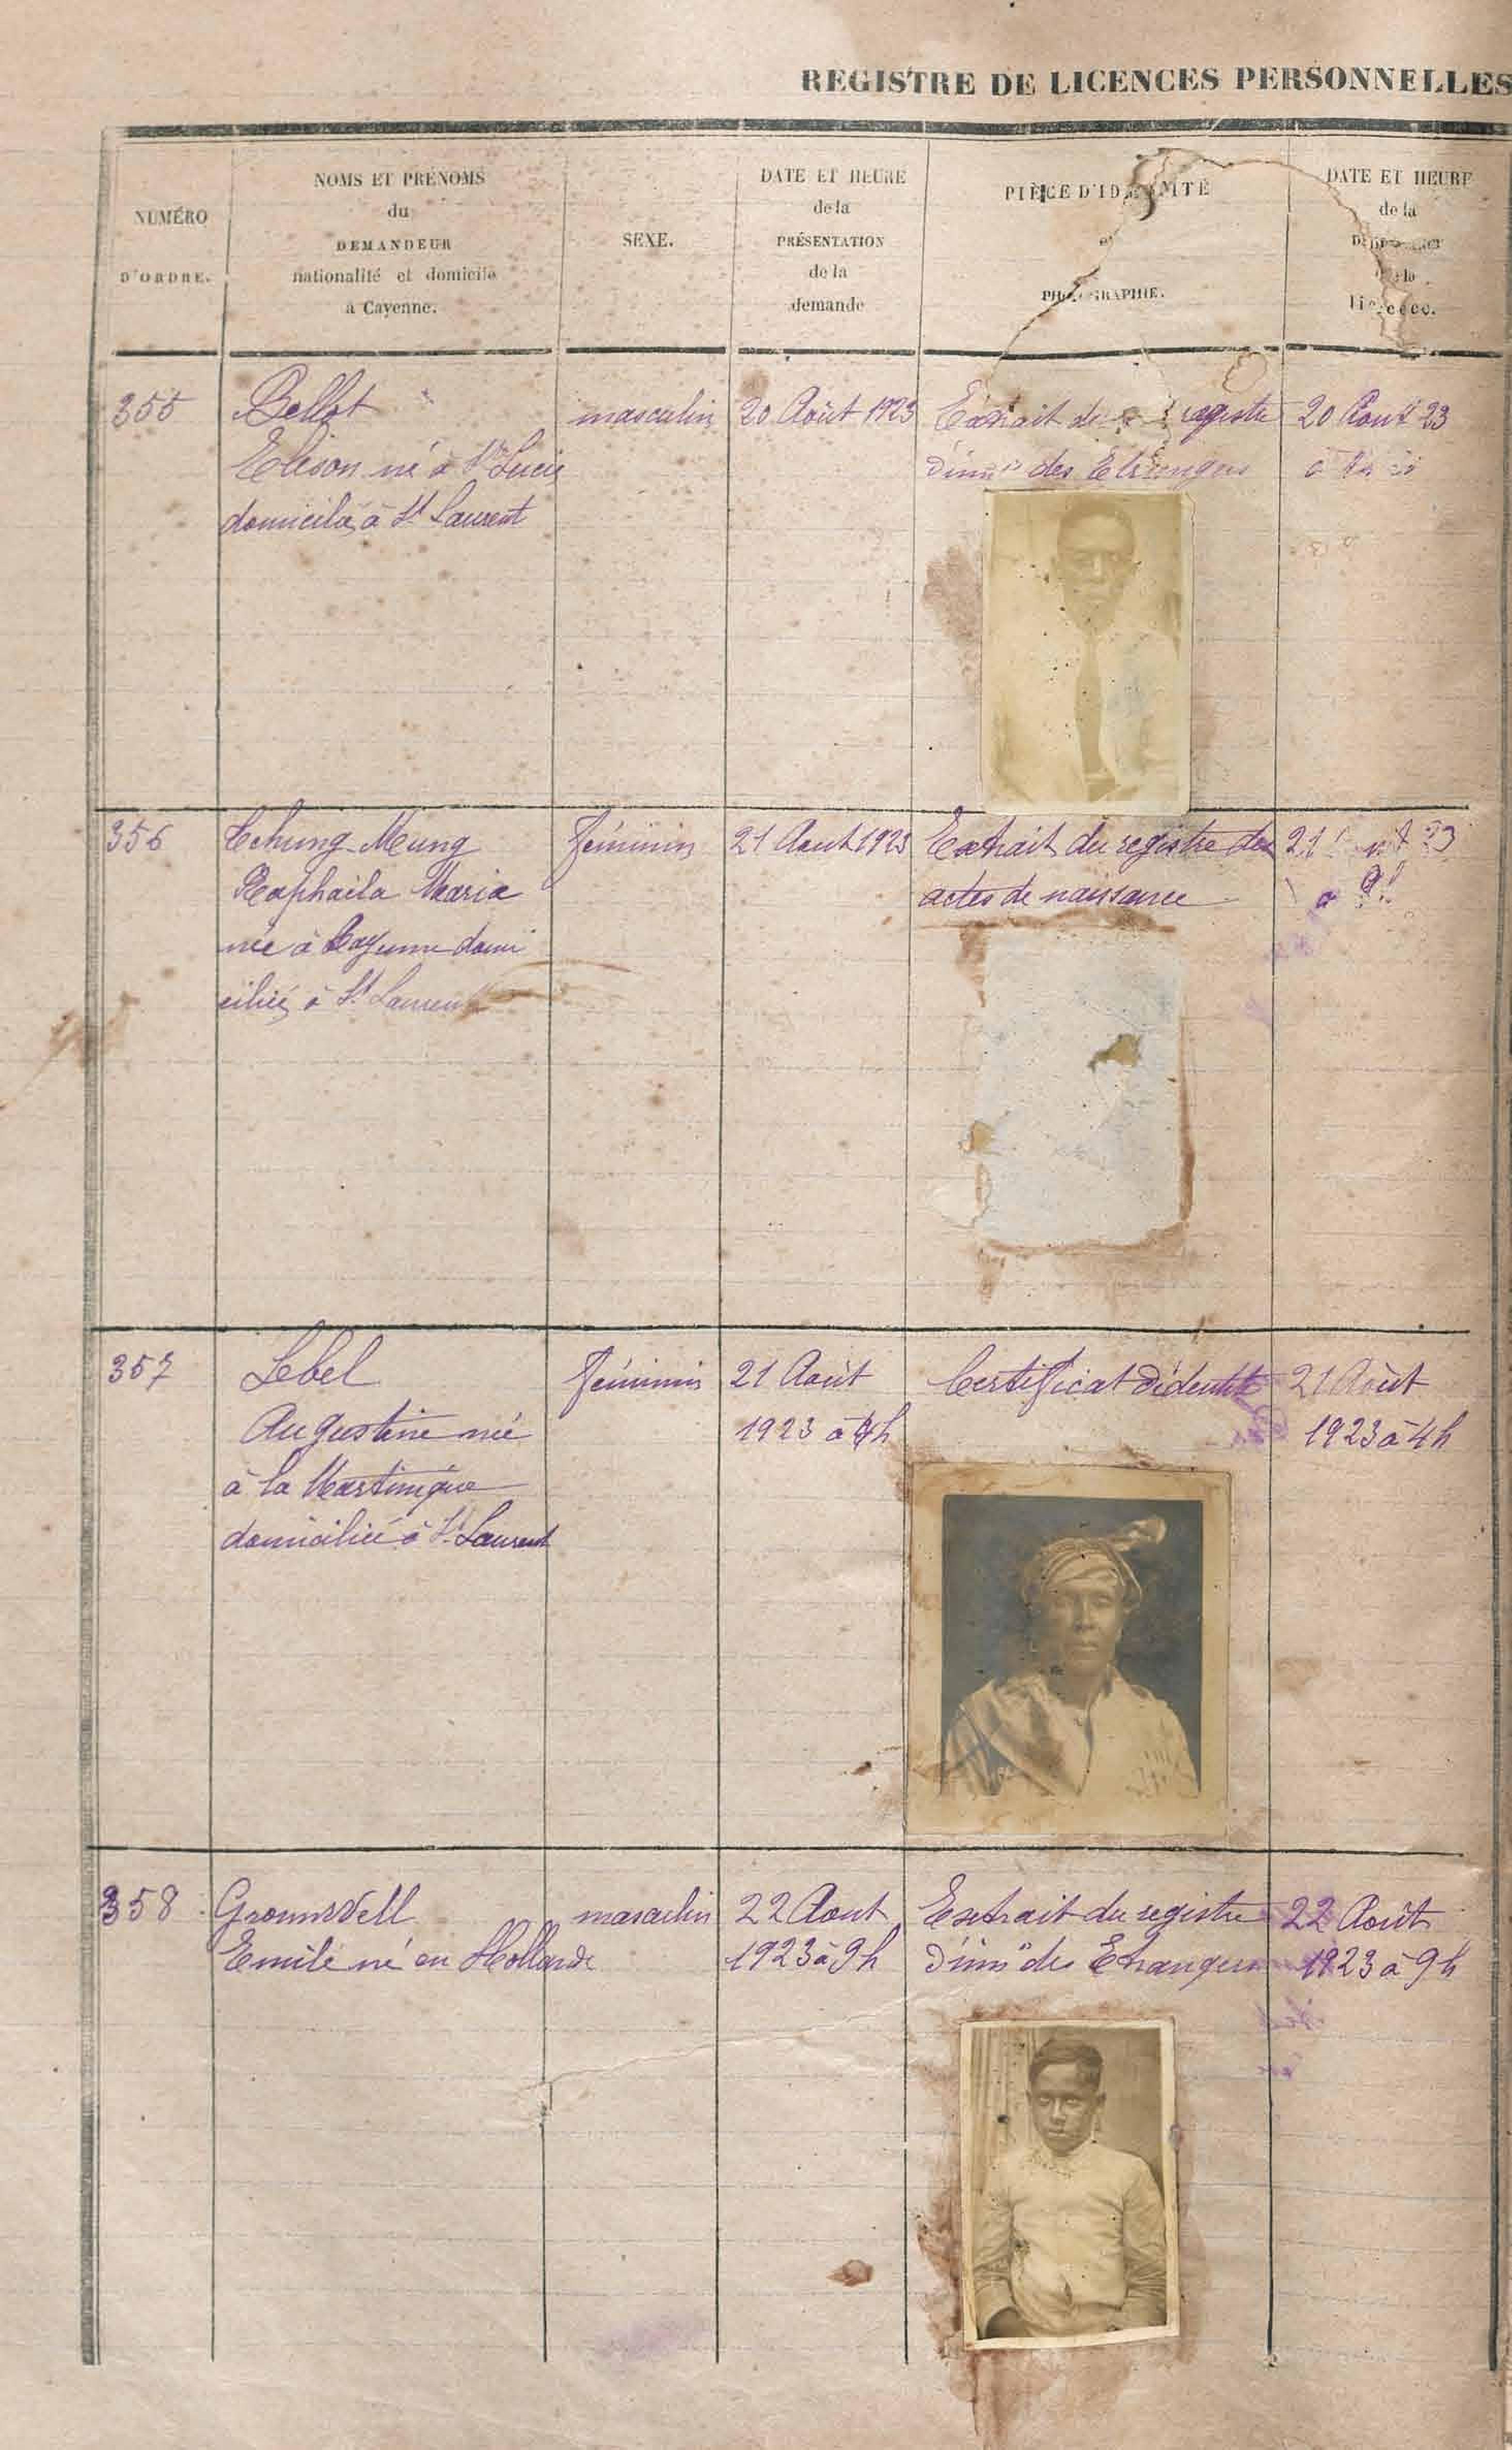 REGISTRE DE LICENCES PERSONNELLES
NUMÉRO
D'ORDRE.
NOMS ET PRÉNOMS
du
DEMANDEUR
nationalité et domicile
à Cayenne.
SEXE.
DATE ET HEURE
de la
PRÉSENTATION
de la
demande
PIÈCE D'IDENTITÉ
et
PHOTOGRAPHIE.
DATE ET HEURE
de la
de la
licence.
355
Bellot
Elison né à Ste Lucie
domicilié à St Laurent
masculin
20 Août 1923
Extrait du registre
d'imm des Etrangers
20 Aout 23
à
356
Tchung-Meung
Raphaëla Maria
née à Cayenne domi
ciliée à St Laurent
féminin
21 Aout 1923
Extrait du registre des
actes de naissance
21 23
à
357
Lebel
Augustine née
à la Martinique
domiciliée à St Laurent
féminin
21 Août
1923 à 4h
Certificat d'identité
21 Août
1923 à 4h
358
Grounwell
Emile né en Hollande
masculin
22 Aout
1923 à 9h
Extrait du registre
d'imm des Etrangers
22 Août
1923 à 9h